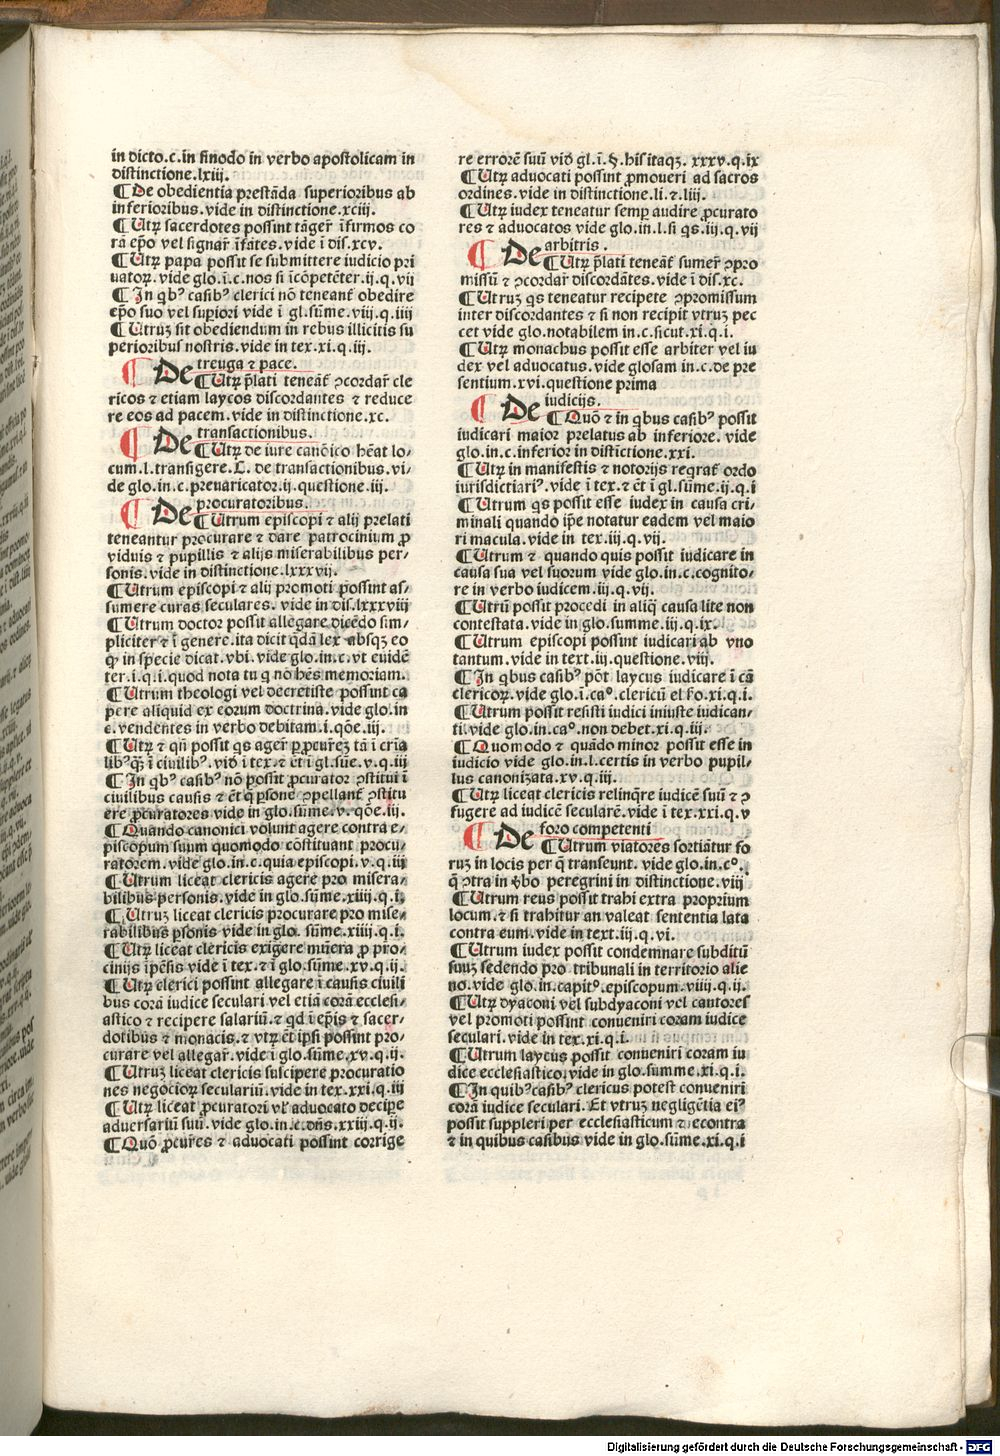 in dicto.c.in sinodo in verbo apostolicam in
distinctione.lxiii.
¶De obedientia prestāda superioribus ab
inferioribus.vide in distinctione.xciij.
¶Utꝝ sacerdotes possint tāger̄ īfirmos co
rā ep̄o vel signar̄ īfātes.vide ī dis.xcv.
¶Utꝝ papa possit se submittere iudicio pri
uatoꝝ.vide glo.ī.c.nos si īcōpetēter.ij.q.vij
¶In qbꝰ casibꝰ clerici nō teneant̄ obedire
ep̄o suo vel suꝑiori vide ī gl.sūme.viij.q.iiij
¶Utruꝫ sit obediendum in rebus illicitis su
perioribus nostris.vide in tex.xi.q.iij.
¶ De treuga ⁊ pace.
¶Utꝝ p̄lati teneāt̄ ꝯcordar̄ cle
ricos ⁊ etiam laycos discordantes ⁊ reduce
re eos ad pacem.vide in distinctione.xc.
¶ De transactionibus.
¶Utꝝ de iure canōico hēat lo⸗
cum.l.transigere.C.de transactionibus.vi⸗
de glo.in.c.preuaricator.ij.questione.iij.
¶ De procuratoribus.
¶Utrum episcopi ⁊ alij prelati
teneantur procurare ⁊ dare patrocinium ꝓ
viduis ⁊ pupillis ⁊ alijs miserabilibus per⸗
sonis.vide in distinctione.lxxxvij.
¶Utrum episcopi ⁊ alij promoti possint as⸗
sumere curas seculares.vide in dis.lxxxviij
¶Utrum doctor possit allegare dicēdo sim⸗
pliciter ⁊ ī genere.ita dicit qdā lex absqꝫ eo
ꝙ in specie dicat.vbi.vide glo.in.c.vt euidē
ter.i.q.i.quod nota tu q nō hēs memoriam.
¶Utrum theologi vel decretiste possint ca
pere aliquid ex eorum doctrina.vide glo.in
c.vendentes in verbo debitam.i.qōe.iij.
¶Utꝝ ⁊ qn̄ possit qs ager̄ ꝑ ꝓcur̄eꝫ tā ī crīa
libꝰqꝫ ī ciuilibꝰ.vid̄ ī tex.⁊ ēt ī gl.sūe.v.q.iij
¶In qbꝰ casibꝰ nō possit ꝓcurator ꝯstitui ī
ciuilibus causis ⁊ ēt q ꝑsone ꝯpellant̄ ꝯstitu
ere ꝓcuratores vide in glo.sūme.v.qōe.iij.
¶Quando canonici volunt agere contra e⸗
piscopum suum quomodo cōstituant procu⸗
ratorem.vide glo.in.c.quia episcopi.v.q.iij
¶Utrum liceat clericis agere pro misera⸗
bilibus personis.vide in glo.sūme.xiiij.q.i.
¶Utruꝫ liceat clericis procurare pro mise⸗
rabilibus ꝑsonis vide in glo.sūme.xiiij.q.i.
¶Utꝝ liceat clericis exigere mūera ꝓ pro⸗
cinijs īpēsis vide ī tex.⁊ ī glo.sūme.xv.q.ij.
¶Utꝝ clerici possint allegare ī causis ciuili
bus corā iudice seculari vel etiā corā ecclesi⸗
astico ⁊ recipere salariū.⁊ qd ī ep̄is ⁊ sacer⸗
dotibus ⁊ monacis.⁊ vtꝝ ēt ip̄si possint pro⸗
curare vel allegar̄.vide ī glo.sūme.xv.q.ij.
¶Utruꝫ liceat clericis suscipere procuratio
nes negocioꝝ seculariū.vide in tex.xxi.q.iij
¶Utꝝ liceat ꝓcuratori vl̄ aduocato decipe
aduersariū suū.vide glo.in.c.dn̄s.xxiij.q.ij.
¶Quō ꝓcur̄es ⁊ aduocati possint corrige
re errorē suū vid̄ gl.ī.§.his itaqꝫ.xxxv.q.ix
¶Utꝝ aduocati possint ꝓmoueri ad sacros
ordines.vide in distinctione.li.⁊ liij.
¶Utꝝ iudex teneatur semꝑ audire ꝓcurato
res ⁊ aduocatos vide glo.in.l.si qs.iij.q.vij
¶ De arbitris.
¶Utꝝ p̄lati teneāt̄ sumer̄ ꝯpro
missū ⁊ ꝯcordar̄ discordātes.vide ī dis.xc.
¶Utruꝫ qs teneatur recipete ꝯpromissum
inter discordantes ⁊ si non recipit vtruꝫ pec
cet vide glo.notabilem in.c.sicut.xi.q.i.
¶Utꝝ monachus possit esse arbiter vel iu
dex vel aduocatus.vide glosam in.c.de pre
sentium.xvi.questione prima
¶ De iudicijs.
¶Quō ⁊ in qbus casibꝰ possit
iudicari maior prelatus ab inferiore.vide
glo.in.c.inferior in distictione.xxi.
¶Utꝝ in manifestis ⁊ notorijs reqrat̄ ordo
iurisdictiariꝰ.vide ī tex.⁊ ēt ī gl.sūme.ij.q.i
¶Utrum qs possit esse iudex in causa cri⸗
minali quando ip̄e notatur eadem vel maio
ri macula.vide in tex.iij.q.vij.
¶Utrum ⁊ quando quis possit iudicare in
causa sua vel suorum vide glo.in.c.cognito⸗
re in verbo iudicem.iij.q.vij.
¶Utrū possit procedi in aliq causa lite non
contestata.vide in glo.summe.iij.q.ix.
¶Utrum episcopi possint iudicari ab vno
tantum.vide in text.iij.questione.viij.
¶In qbus casibꝰ pōt laycus iudicare ī cā
clericoꝝ.vide glo.ī.caº.clericū el fo.xi.q.i.
¶Utrum possit resisti iudici iniuste iudican⸗
ti.vide glo.in.caº.non debet.xi.q.iij.
¶Quomodo ⁊ quādo minor possit esse in
iudicio vide glo.in.l.certis in verbo pupil⸗
lus canonizata.xv.q.iij.
¶Utꝝ liceat clericis relinqre iudicē suū ⁊ ꝯ
fugere ad iudicē secularē.vide ī tex.xxi.q.v
¶ De foro competenti
¶Utrum viatores sortiātur fo
ruꝫ in locis per q̄ transeunt.vide glo.in.cº.
q̄ ꝯtra in v̄bo peregrini in distinctione.viij
¶Utrum reus possit trahi extra proprium
locum.⁊ si trahitur an valeat sententia lata
contra eum.vide in text.iij.q.vi.
¶Utrum iudex possit condemnare subditū
suuꝫ sedendo pro tribunali in territorio alie
no.vide glo.in.capitº.episcopum.viiij.q.ij.
¶Utꝝ dyaconi vel subdyaconi vel cantores
vel promoti possint conueniri coram iudice
seculari.vide in tex.xi.q.i.
¶Utrum laycus possit conueniri coram iu
dice ecclesiastico.vide in glo.summe.xi.q.i.
¶In quibꝰcasibꝰ clericus potest conueniri
corā iudice seculari.Et vtruꝫ negligētia eiꝰ
possit suppleri per ecclesiasticum ⁊ econtra
⁊ in quibus casibus vide in glo.sūme.xi.q.i
Digitalisierung gefördert durch die Deutsche Forschungsgemeinschaft - DFG